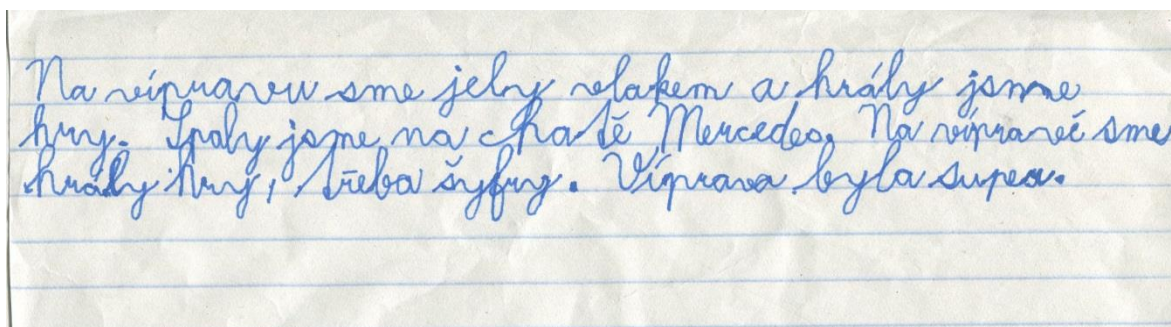 Na vípravu sme jely vlakem a hrály jsme
hry. Spaly jsme na chatě Mercedes. Na vípravě sme
hrály hry, třeba šyfry. Víprava byla super.